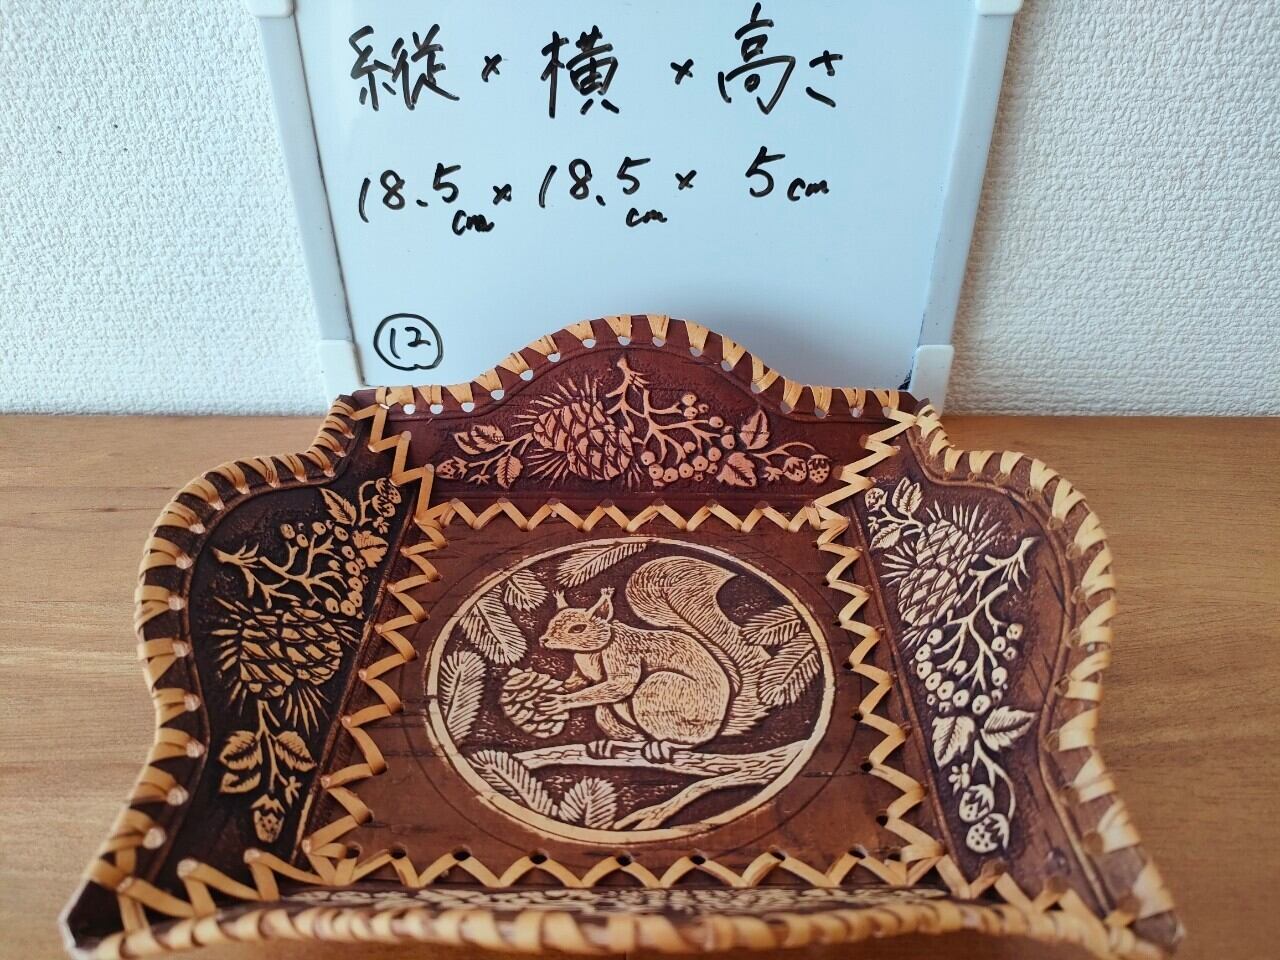 縦×横×高さ
18.5cm×18.5cm×5cm
⑫